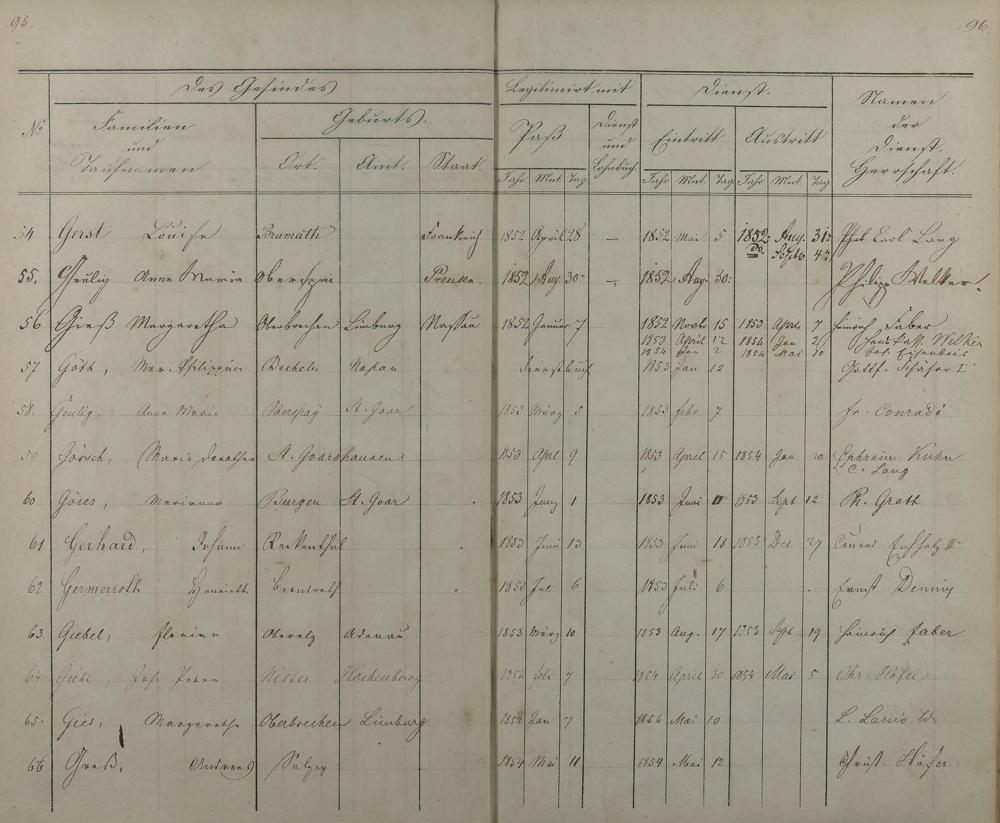 95.
96.
Des Gesindes
Legitimirt mit
Dienst.
Namen der Dienst-Herrschaft.
No
Familien und Taufnamen
Geburts-
Paß
Dienst und Lohnbuch
Eintritt
Austritt
Ort. Amt. Staat
Jahr Mnt. Tag
Jahr Mnt. Tag Jahr Mnt. Tag
54 Gerst Louise Brumath Frankreich 1852 April 28 — 1852 Mai 5 1852 Aug. 31 Carl Lang
do Septb 4
55. Anna Maria Preußen. 1852 Aug. 30 — 1852 Aug. 30. Philipp Welker.
56 Gieß Margaretha Oberbrechen Limburg Nassau 1852 Januar 7 1852 Novbr 15 1853 April 7 Heinrich Faber
1853 April 12 1854 Jan 2 Welker
1854 Jan 2 1854 Mai 10 Joh. Eisenbeis
57 Göth, Philippine Becheln Naßau Dienstbuch 1853 Jan 12 Gottf. Schäfer I
58. Anna Maria Oberspay St. Goar 1853 März 5 1853 Febr 7 Fr. Conradi
59 Maria Dorothea St. Goarshausen 1853 April 9 1853 April 15 1854 Jan 20 Ephraim Kuhn
C. Lang
60 Göres, Marianna Burgen St. Goar " 1853 Juny 1 1853 Juni 11 1853 Sept 12 Ph. Groth
61 Gerhard, Johann Reckenthal " 1853 Juni 13 1853 Juni 18 1853 Dec 27
62 Germerroth Henriette " 1853 Jul 6 1853 Juli 6 Ernst
63. Giebel, Florian Oberelz Adenau 1853 März 10 1853 Aug. 17 1853 Sept. 19 Heinrich Faber
64. Joh. Peter Nister Hachenburg 1854 Febr 7 1854 April 30 1854 Mai 5 Chr. Höfer
65. Gies, Margaretha Oberbrechen Limburg 1852 Jan 7 1854 Mai 10 L.
66 Greß, Andreas Salzig 1854 Mai 11 1854 Mai 12 Christ. Höfer